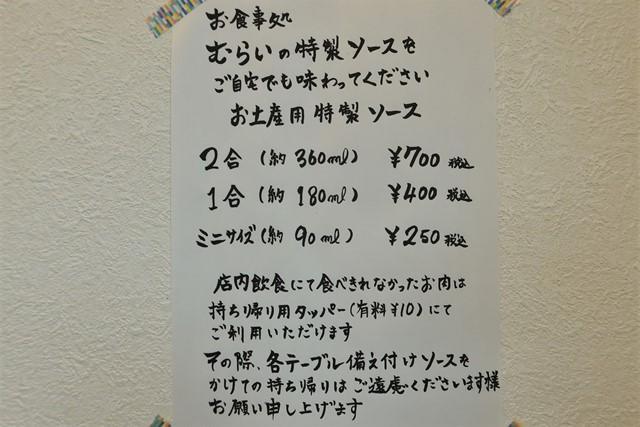 お食事処
むらいの特製ソースを
ご自宅でも味わってください
お土産用特製ソース
2合(約360ml) ¥700税込
1合(約180ml) ¥400税込
ミニサイズ(約90ml) ¥250税込
店内飲食にて食べきれなかったお肉は
持ち帰り用タッパー(有料¥10)にて
ご利用いただけます
その際、各テーブル備え付けソースを
かけての持ち帰りはご遠慮くださいます様
お願い申し上げます